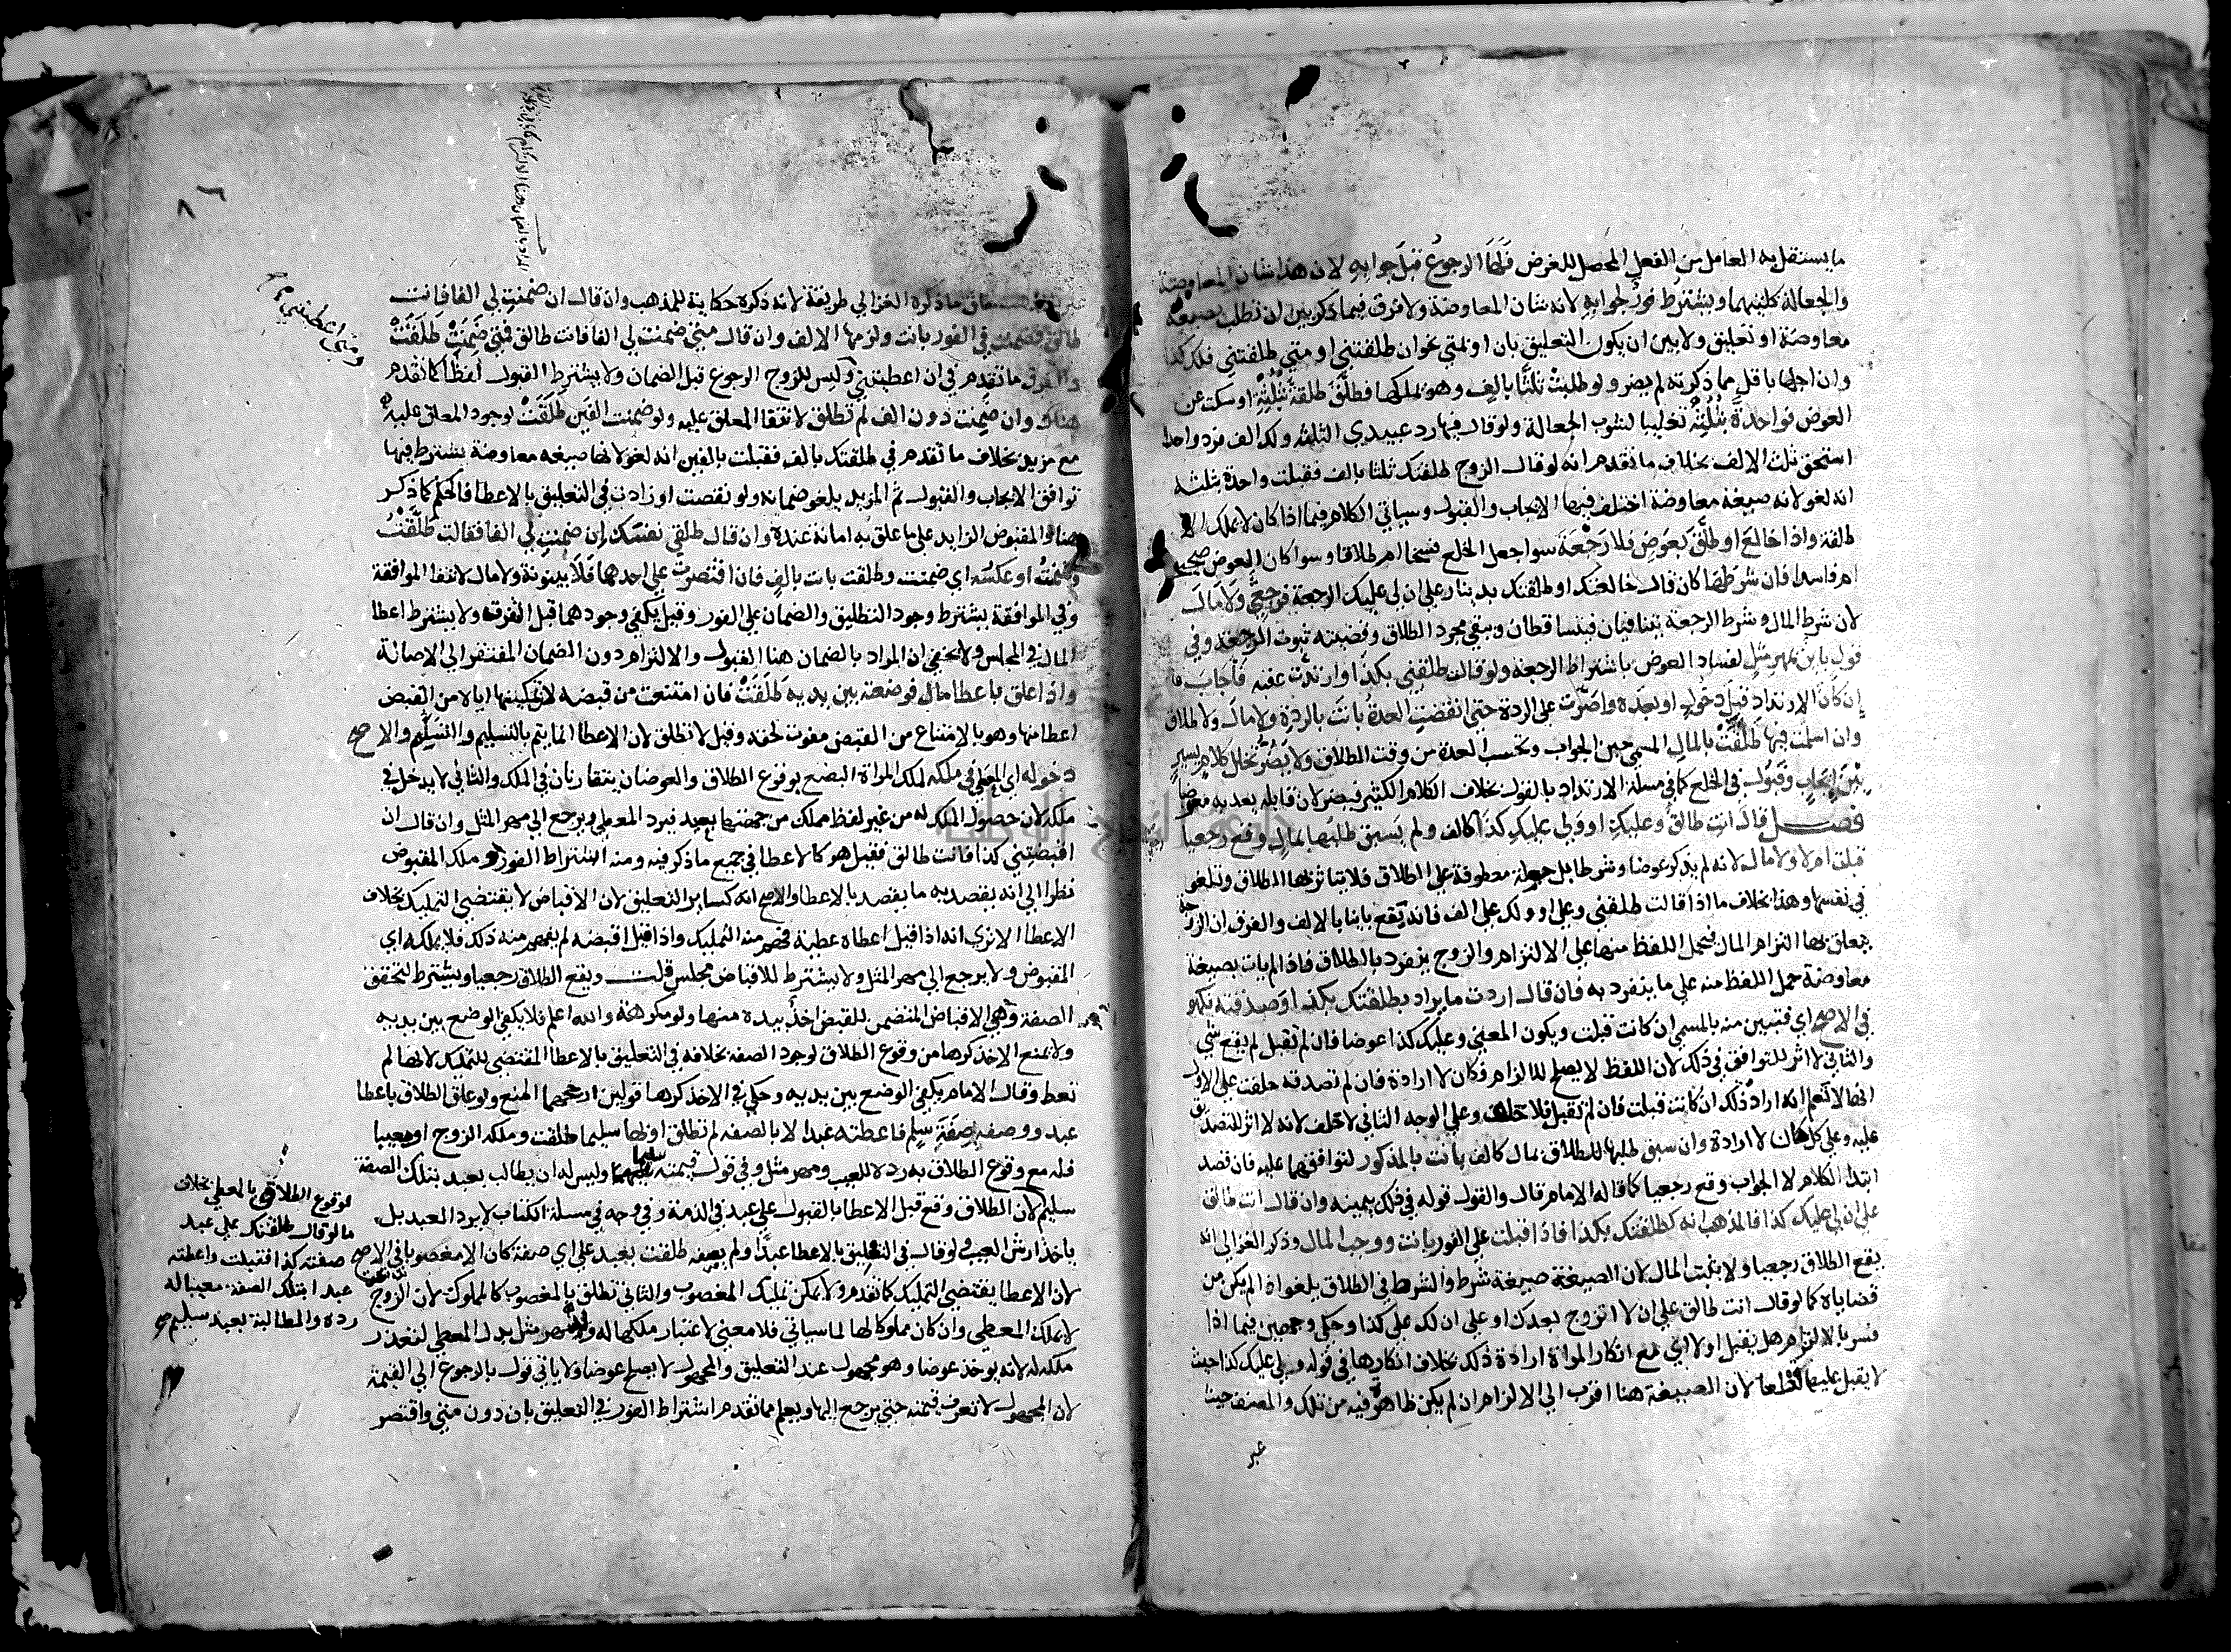 ما يستقل به العامل من الفعل المحصل للغرض فَلَهَا الرجوعُ قَبْلَ جوابِهِ لان هذا شان المعاوضة
والجعالة كليهما ويشترط فورٌ لجوابِهِ لانه شان المعاوضة ولا فرق فيما ذكر بين ان تطلب بصيغة
معاوضة او تعليق ولا بين ان يكون التعليق بان او بمتي نحو ان طلقتني او متي طلقتني فلك كذا
وان اجابها باقل مما ذكرته لم يضر ولو طلبتْ ثَلثًا بالفٍ وهو يملكها فطلَّقَ طلقةً بثُلُثِهِ او سكت عن
العوض فواحدةٌ بثُلُثِهِ تغليبا لشوب الجعالة ولو قال فيها رد عبيدي الثلثة ولك الف فرد واحدا
استحق ثلث الالف بخلاف ما تقدم انه لو قال الزوج طلقتك ثلثا بالف فقبلت واحدة بثلثه
انه لغو لانه صيغة معاوضة اختلف فيها الايجاب والقبول وسياتي الكلام فيما اذا كان لا يملك الا
طلقة واذا خالعَ او طلَّقَ بعوَضٍ فلا رَجْعَةَ سوا جعل الخلع فسخا ام طلاقا وسوا كان العوض صحيحا
ام فاسدا فان شرطها كان قال خالعتك او طلقتك بدينار علي ان لي عليك الرجعة فرجعيٌّ ولا مالَ
لان شرط المال وشرط الرجعة يتنافيان فيتساقطان ويبقي مجرد الطلاق وقضيته ثبوت الرجعة وفي
قولٍ باين بمهر مِثلٍ لفساد العوض باشتراط الرجعة ولو قالت طلقني بكذا وارتدَّت عقبه فاجابَ
إن كان الارتداد قبل دخولٍ او بعده واصَرَّت على الردة حتى انقضت العدةُ بانَت بالردةِ ولا مالَ ولا طلاق
وان اسلمت فيها طَلُقَتْ بالمالِ المسمي حين الجواب وتحسب العدة من وقت الطلاق ولا يَضُرُّ تخللُ كلامٍ يسيرٍ
بَيْنَ إيجابٍ وقَبُولٍ في الخلع كما في مسلة الارتداد بالقول بخلاف الكلام الكثير فيضر لان قايله يعد به معرضا
فصل قالَ انتِ طالقٌ وعليكِ او ولي عليكِ كذا كالف ولم يَسبق طلبُها بمالٍ وقع رجعيا
قبلت ام لا ولا مال لانه لم يذكر عوضا ولا شرطا بل جملة معطوفة علي الطلاق فلا يتاثر بها الطلاق وتلغو
في نفسها وهذا بخلاف ما اذا قالت طلقني وعلي او ولك علي الف فانه يقع باينا بالالف والفرق ان الزوجة
يتعلق بها التزام المال فيحمل اللفظ منها علي الالتزام والزوج ينفرد بالطلاق فاذا لم يات بصيغة
معاوضة حمل اللفظ منه علي ما ينفرد به فان قال اردت ما يراد بطلقتك بكذا وصدقته فكهو
في الاصح اي فتبين منه بالمسمي ان كانت قبلت ويكون المعني وعليك كذا عوضا فان لم تقبل لم يقع شي
والثاني لا اثر للتوافق في ذلك لان اللفظ لا يصلح للالزام فكان لا ارادة فان لم تصدقه حلفت علي الاول
انها لا تعلم انه اراد ذلك ان كانت قبلت فان لم تقبل فلا حلف وعلي الوجه الثاني لا تحلف لانه لا اثر للتصديق
عليه وعلي كل كان لا ارادة وان سبق طلبها للطلاق بمال كالف بانت بالمذكور لتوافقهما عليه فان قصد
ابتدا الكلام لا الجواب وقع رجعيا كما قاله الامام قال والقول قوله في ذلك بيمينه وان قال انت طالق
علي ان لي عليك كذا فالمذهب انه كطلقتك بكذا فاذا قبلت علي الفور بانت ووجب المال وذكر الغزالي انه
يقع الطلاق رجعيا ولا يثبت المال لان الصيغة صيغة شرط والشرط في الطلاق يلغو اذا لم يكن من
قضاياه كما لو قال انت طالق علي ان لا اتزوج بعدك او علي ان لك علي كذا وحكي وجهين فيما اذا
فسر بالالتزام هل يقبل او لا اي مع انكار المراة ارادة ذلك بخلاف انكارها في قوله ولي عليك كذا حيث
لا يقبل عليها قطعا لان الصيغة هنا اقرب الي الالزام ان لم يكن ظاهرة فيه من تلك والمصنف حيث
عبر
ما ذكره الغزالي طريقة لانه ذكره حكاية للمذهب وان قال ان ضمنتِ لي الفا فانت
طالق فضمنت في الفور بانت ولزمها الالف وان قال متي ضمنت لي الفا فانت طالق فمتي ضَمِنَتْ طَلُقَتْ
والفرق ما تقدم في ان اعطيتني وليس للزوج الرجوع قبل الضمان ولا يشترط القبول لَفظًا كما تقدم
هناك وان ضمِنَت دون الف لم تطلق لانتفا المعلق عليه ولو ضمنت الفَين طَلُقَتْ لوجود المعلق عليه
مع مزيد بخلاف ما تقدم في طلقتك بالف فقبلت بالفين انه لغو لانها صيغة معاوضة يشترط فيها
توافق الايجاب والقبول ثم المزيد يلغو ضمانه ولو نقصت او زادت في التعليق بالاعطا فالحكم كما ذكر
هنا والمقبوض الزايد علي ما علق به امانة عنده وان قال طلقي نفسَك ان ضمنتِ لي الفا فقالت طلَّقْتُ
وضَمِنتُ او عكسَه اي ضمنت وطلقت بانت بالفٍ فان اقتصرت علي احدهما فَلَا بينونة ولا مال لانتفا الموافقة
وفي الموافقة يشترط وجود التطليق والضمان علي الفور وقيل يكفي وجودهما قبل الفرقة ولا يشترط اعطا
المال في المجلس ولا يخفي ان المراد بالضمان هنا القبول والالتزام دون الضمان المفتقر الي الاصالة
واذا علق باعطا مال فوضعته بين يديه طَلُقَتْ فان امتنعت من قبضه لان تمكينها اياه من القبض
اعطا منها وهو بالامتناع من القبض مفوت لحقه وقيل لا تطلق لان الاعطا انما يتم بالتسليم والتسلم والاصح
دخوله اي المعطي في ملكه لملك المراة البضع بوقوع الطلاق والعوضان يتقارنان في الملك والثاني لا يدخل في
ملكه لان حصول الملك له من غير لفظ مملك من جهتها بعيد فيرد المعطي ويرجع الي مهر المثل وان قال ان
اقبضتِني كذا فانت طالق فقيل هو كالاعطا في جميع ما ذكر فيه ومنه اشتراط الفور وملك المقبوض
نظرا الي انه يقصد به ما يقصد بالاعطا والاصح انه كساير التعليق لان الاقباض لا يقتضي التمليك بخلاف
الاعطا الا تري انه اذا قيل اعطاه عطية فهم منه التمليك واذا قيل اقبضه لم يفهم منه ذلك فلا يملكه اي
المقبوض ولا يرجع الي مهر المثل ولا يشترط للاقباض مجلس قلت ويقع الطلاق رجعيا ويشترط لتحقق
الصفة وهي الاقباض المتضمن للقبض اخذٌ بيده منها ولو مكرهة والله اعلم فلا يكفي الوضع بين يديه
ولا يمنع الاخذ كرها من وقوع الطلاق لوجود الصفة بخلافه في التعليق بالاعطا المقتضي للتمليك لانها لم
تعط وقال الامام يكفي الوضع بين يديه وحكي في الاخذ كرها قولين ارجحهما المنع ولو علق الطلاق باعطا
عبد ووصفه بصفَةِ سلمٍ فاعطته عبدا لا بالصفة لم تطلق او بها سليما طلقت وملكه الزوج او معيبا
فله مع وقوع الطلاق به رده للعيب ومهر مثل وفي قول قيمته سليما وليس له ان يطالب بعبد بتلك الصفة
سليم لان الطلاق وقع قبل الاعطا بالقبول علي عبد في الذمة وفي وجه في مسلة الكتاب لا يرد العبد بل
ياخذ ارش العيب ولو قال في التعليق بالاعطا عبدًا ولم يصفه طلقت بعبد علي اي صفة كان الا مغصوبا في الاصح
لان الاعطا يقتضي التمليك كما تقدم ولا يمكن تمليك المغصوب والثاني تطلق بالمغصوب كالمملوك لان الزوج
لا يملك المعطي وان كان مملوكا لها لما سياتي فلا معني لاعتبار ملكها له وله مهر مثل بدل المعطي لتعذر
ملكه له لانه يوخذ عوضا وهو مجهول عند التعليق والمجهول لا يصلح عوضا ولا ياتي قول بالرجوع الي القيمة
لان المجهول لا تعرف قيمته حتي يرجع اليها ويعلم مما تقدم اشتراط الفور في التعليق بان دون متي واقتصر
ومتي اعطيتني
لوقوع الطلاق بالمعطي بخلاف
ما لو قال طلقتك علي عبد
صفته كذا فقبلت واعطته
عبدا بتلك الصفة معيبا له
رده والمطالبة بعبد سليم